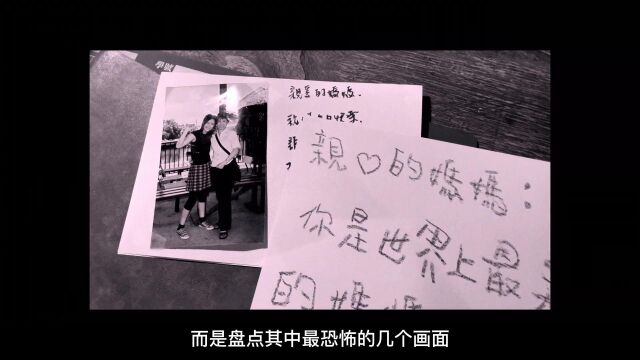 學號
親愛的媽媽:
親♡的媽媽:
你是世界上最
的媽媽
而是盘点其中最恐怖的几个画面